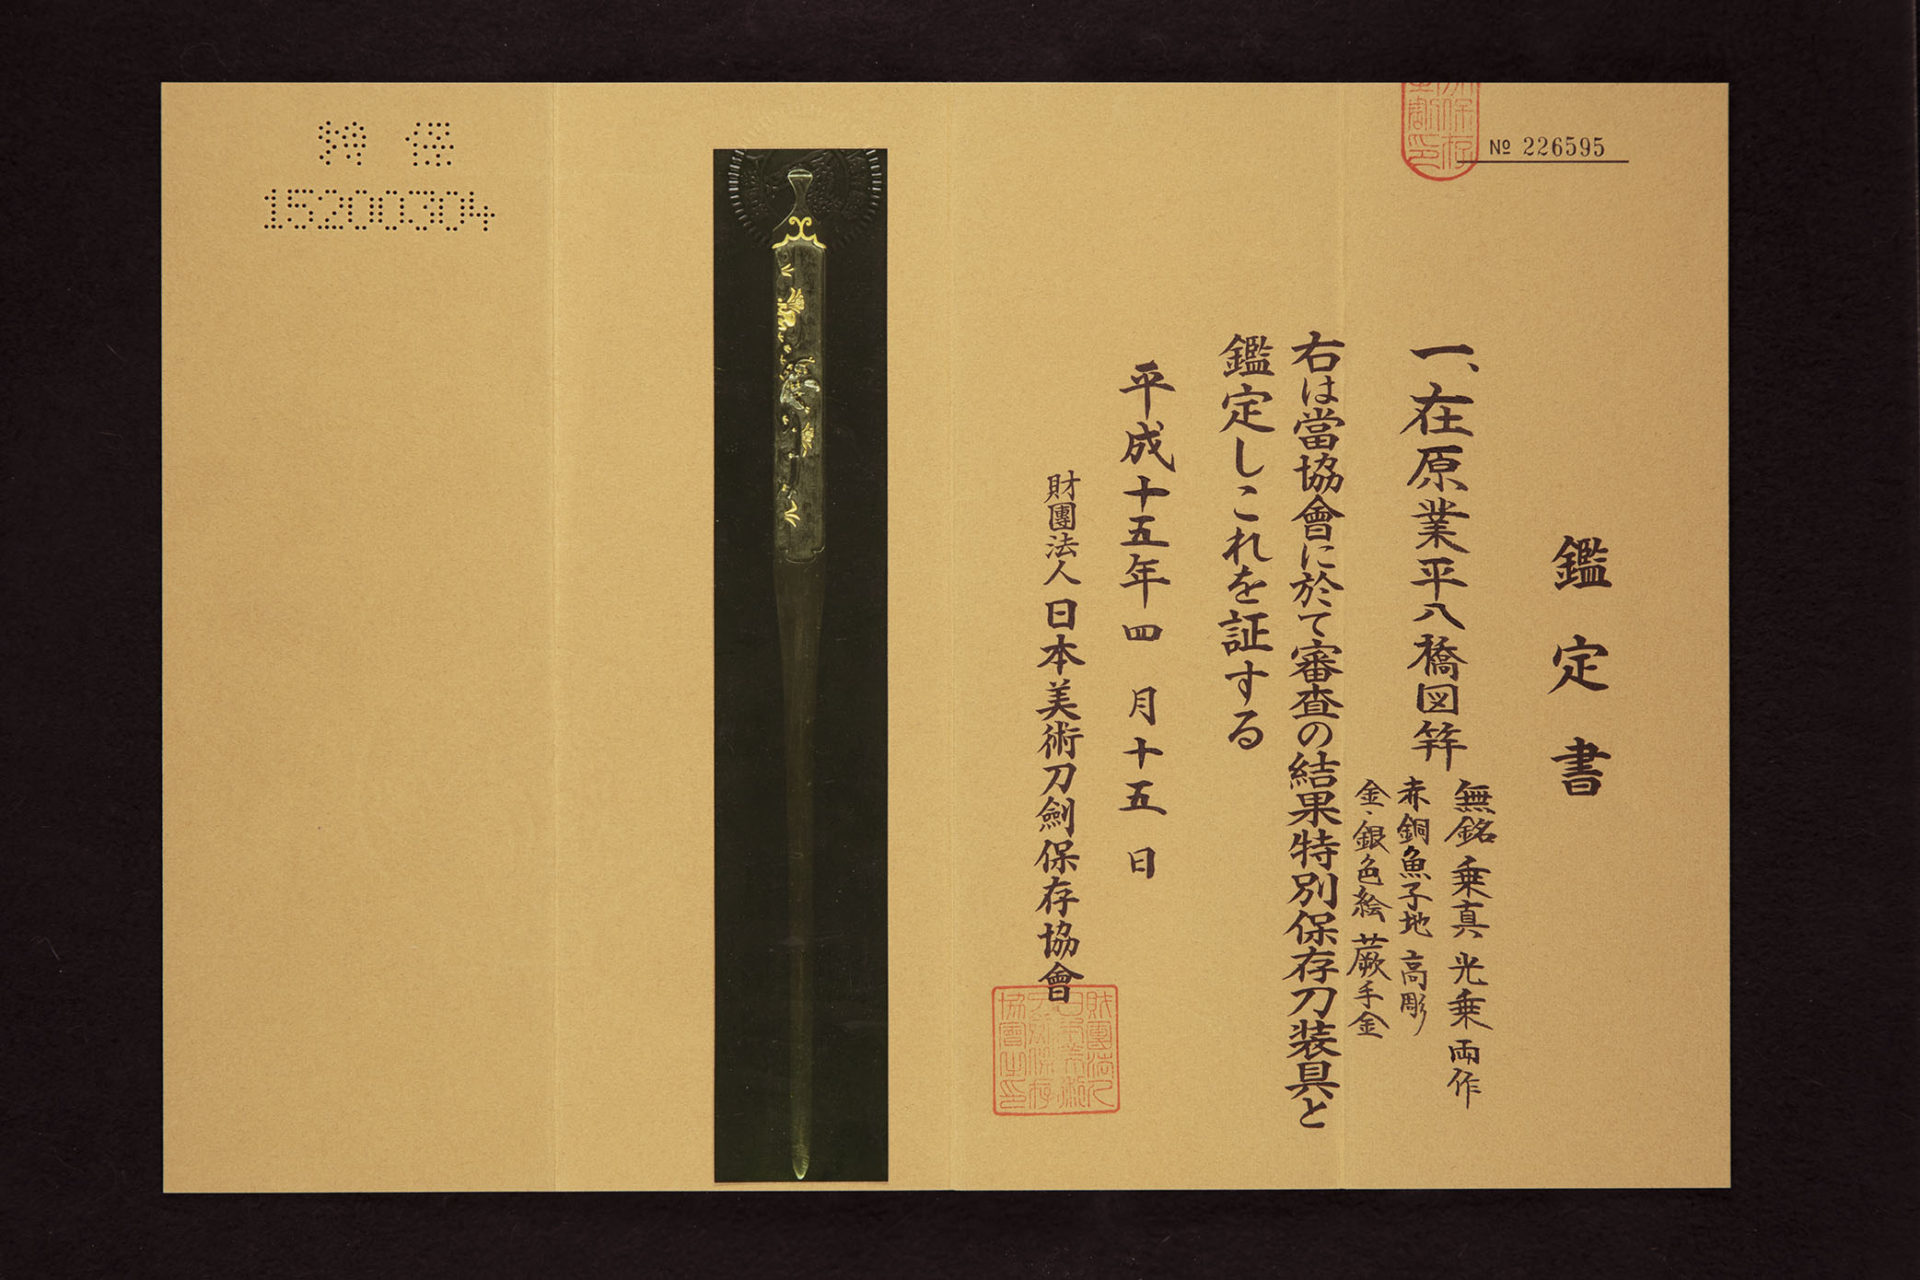 鑑定書
№ 226595
一、在原業平八橋図笄
無銘 乗真 光乗 両作
赤銅魚子地 高彫
金・銀色絵 蕨手金
右は當協會に於て審査の結果特別保存刀装具と
鑑定しこれを証する
平成十五年四月十五日
財團法人 日本美術刀劍保存協會
財團法人日本美術刀劍保存協會之印
特保
15200304